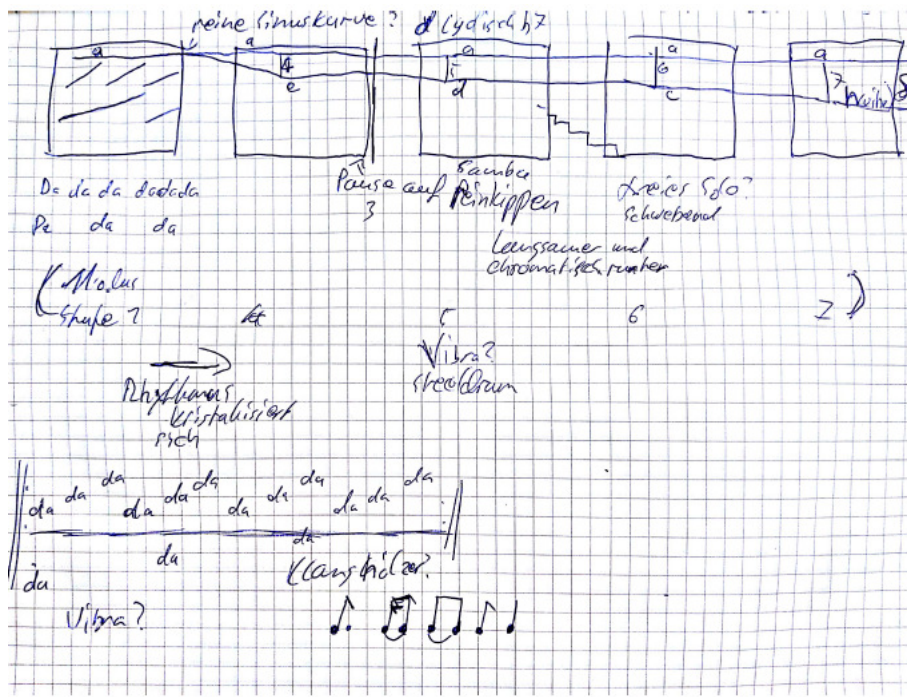 reine Sinuskurve? d Lydisch b7
a a a a a
4 5 6 7
e d c
Da da da dadada
Da da da
Pause auf
3
Samba
Reinkippen
freies Solo?
schwebend
Langsamer und
chromatisch runter
Stufe ? 5 6 7
Vibra?
Steeldrum
Rhythmus
kristalisiert
sich
da da da da da da da da da da da da
da da da
Klanghölzer?
Vibra?